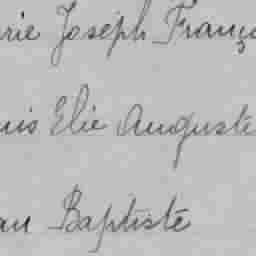 rie Joseph Franç
uis Elie Auguste
an Baptiste